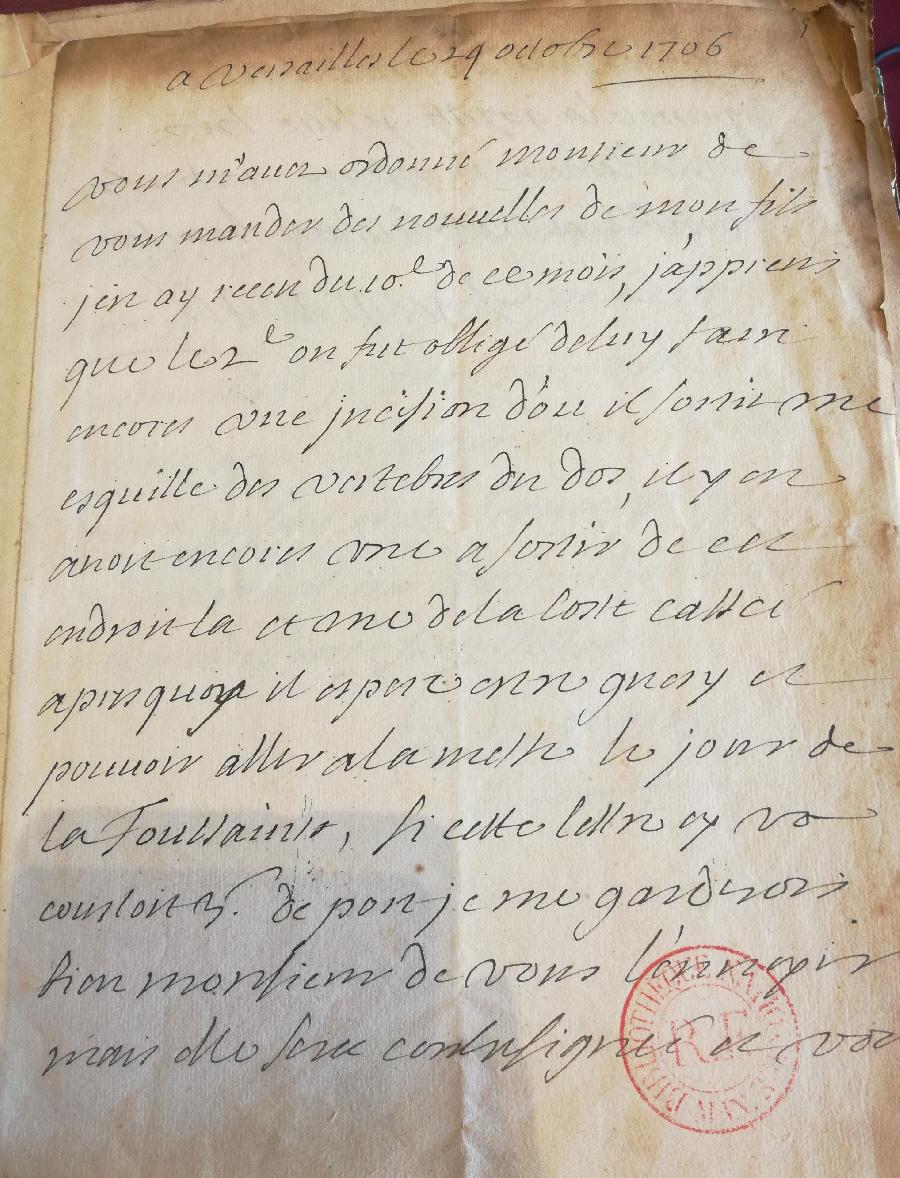 a Versailles le 29 octobre 1706
vous m'aués ordonné monsieur de
vous mander des nouuelles de mon fils
j'en ay receu du 10.e de ce mois, j'apprens
que le 2e on fut obligé de luy faire
encores vne jncision d'ou il sortit vne
esquille des vertebres du dos, il y en
auoit encores vne a sortir de cet
endroit la et vne de la coste cassée
apres quoy il espere estre guery et
pouuoir aller a la messe le jour de
la Toussaints, si cette lettre cy vo
coustoit de port je me garderois
bien monsieur de vous l'énuoyer
mais elle sera contresignée et vou
BIBLIOTHEQUE NATIONALE
RF